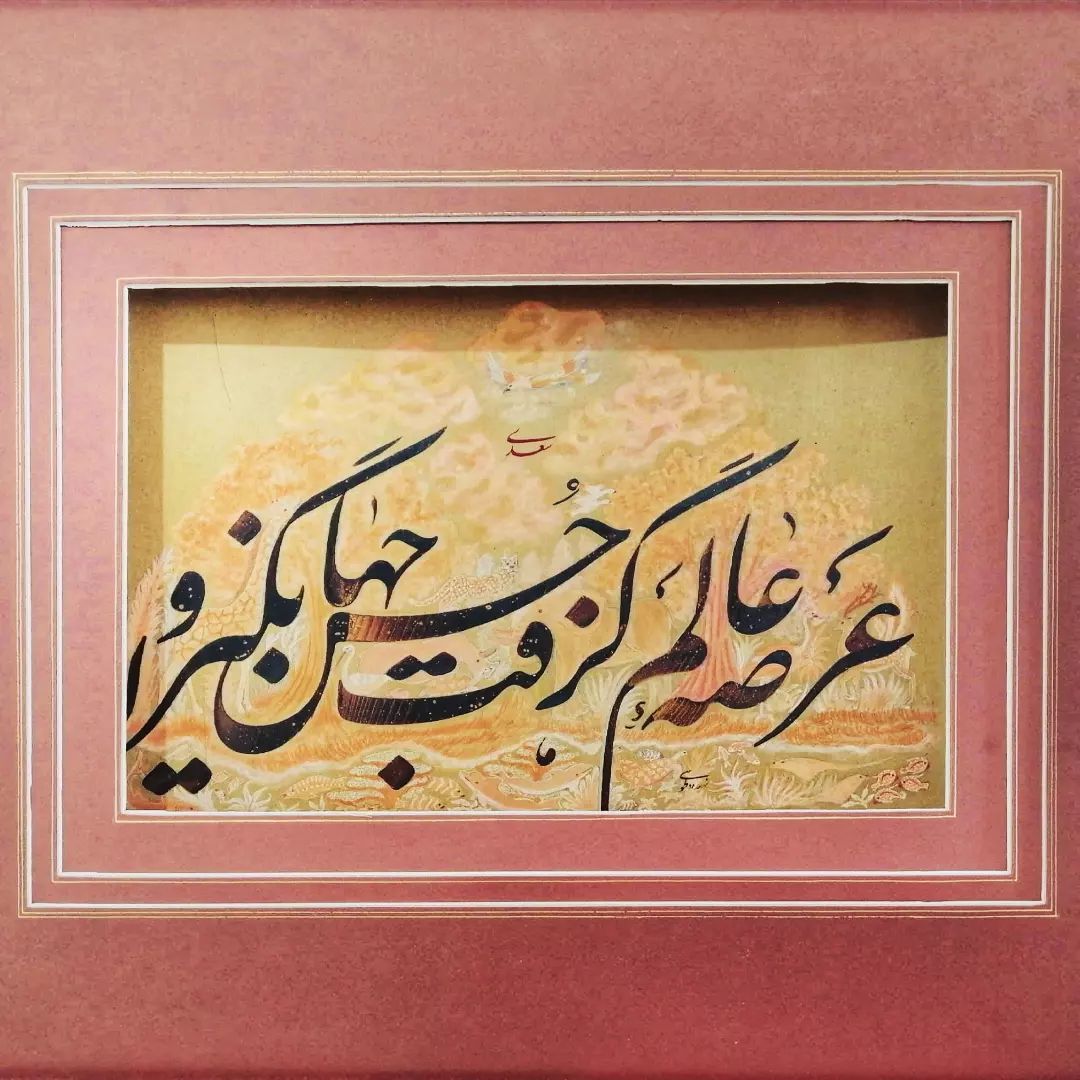 سعدی
عرصهٔ عالم گرفت حُسن جهانگیر او